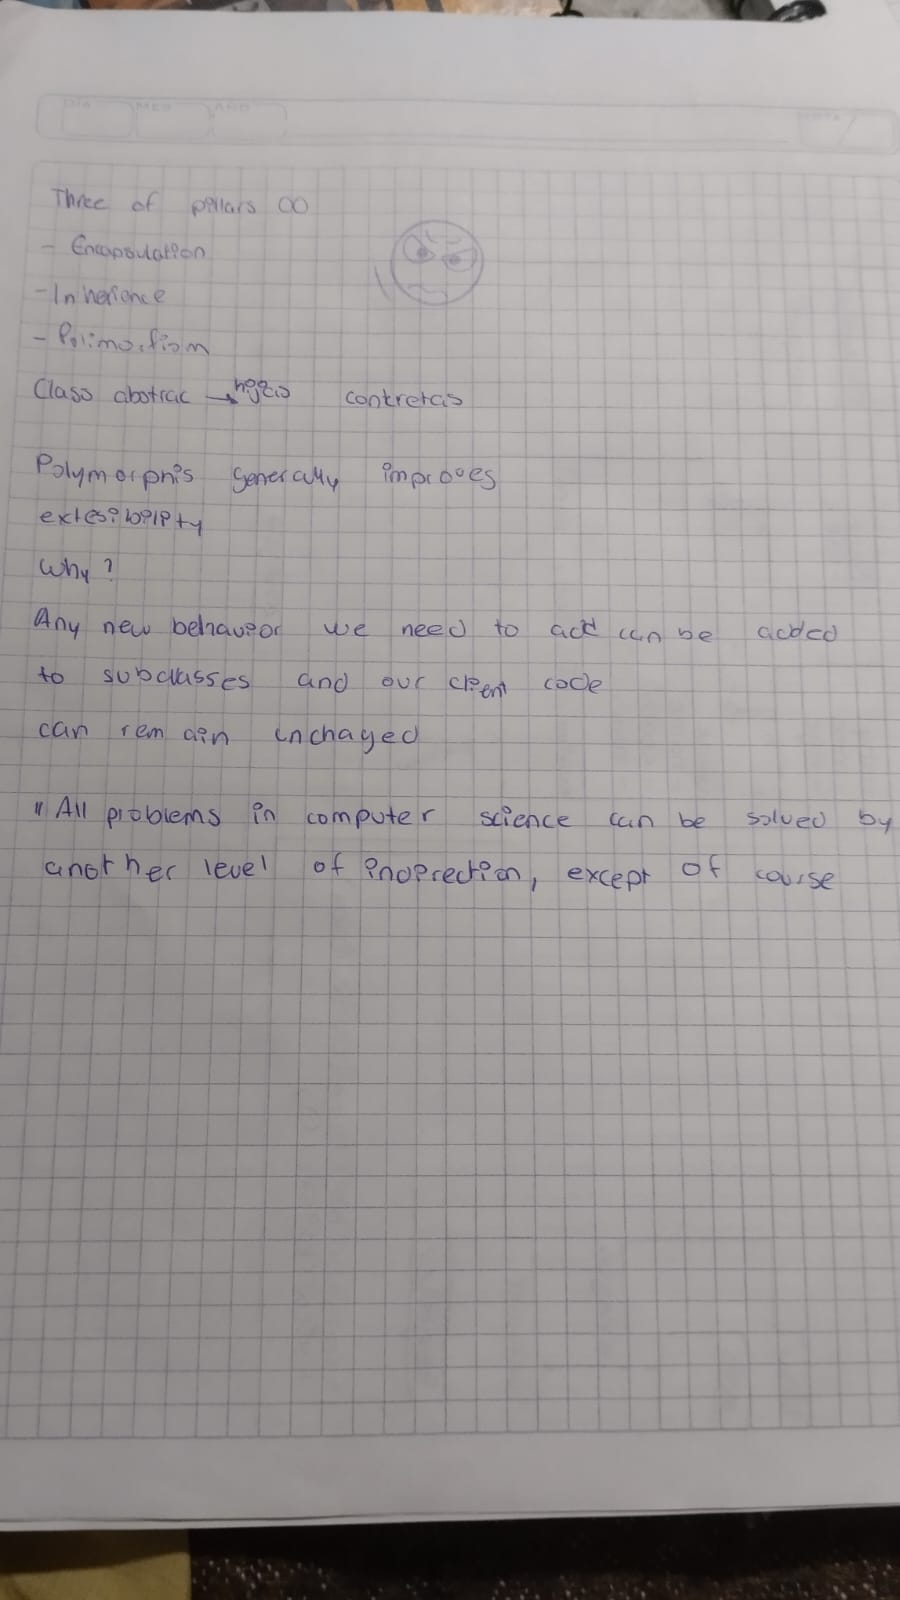 DIA MES AÑO
Three of pillars OO
- Encapsulation
- Inherience
- Polimorfism
Class abstrac → hijas contretas
Polymorphis generally improves
extesibility
Why?
Any new behavior we need to add can be added
to subclasses and our client code
can remain unchaged
"All problems in computer science can be solved by
another level of indirection, except of course